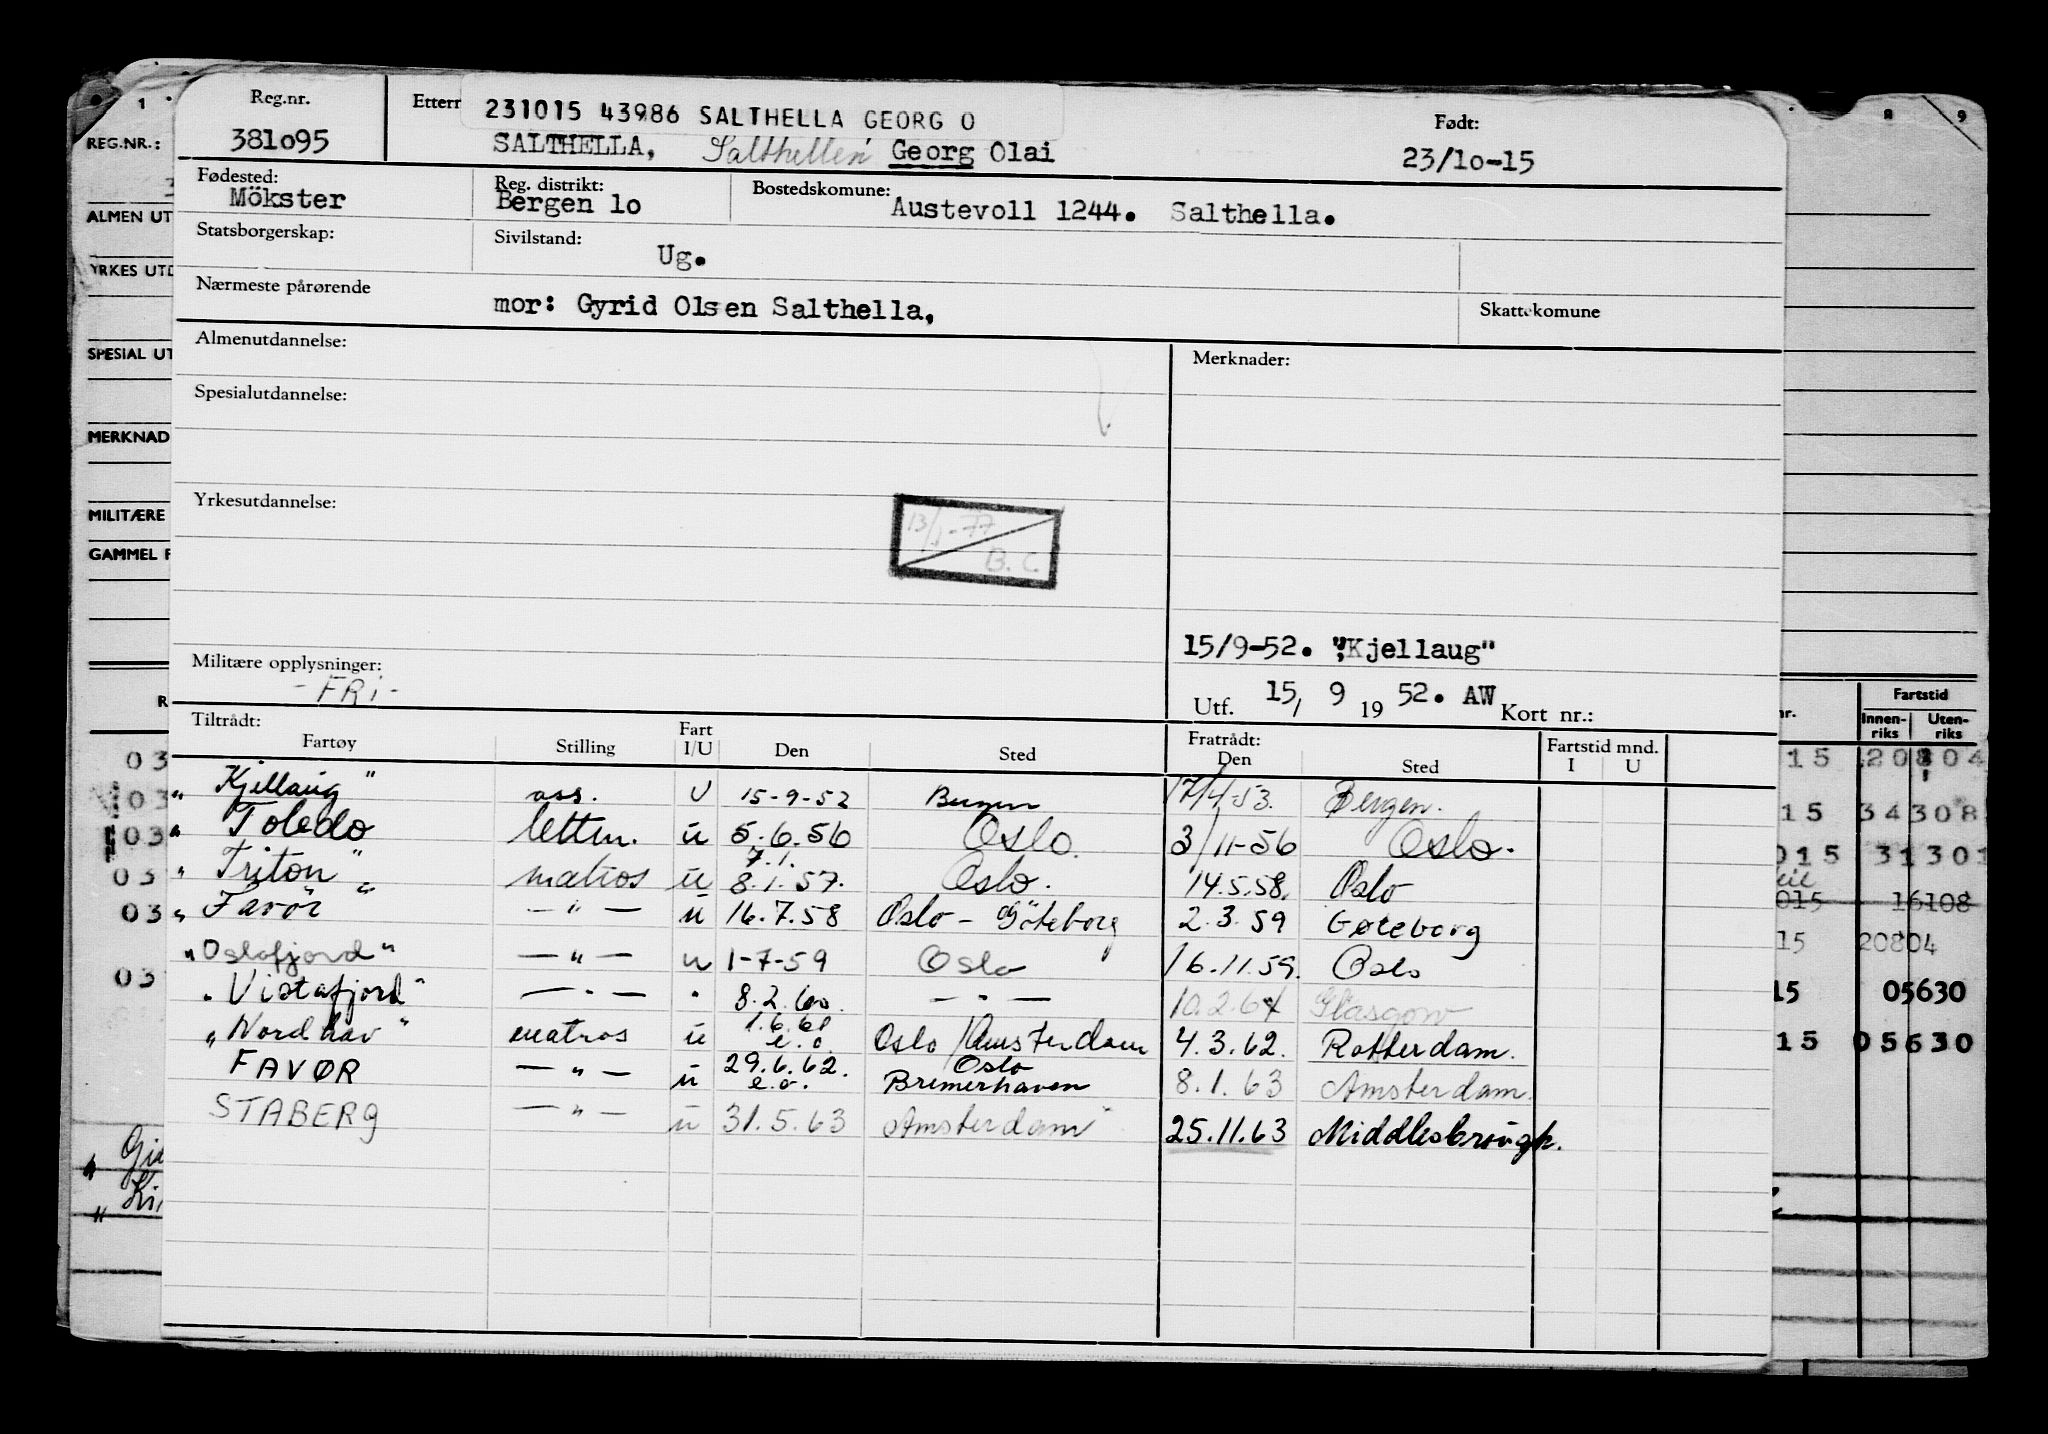 Reg.nr.
381o95
Etterr
231015 43986 SALTHELLA GEORG O
SALTHELLA, Salthellen Georg Olai
Født:
23/1o-15
Fødested:
Mökster
Reg. distrikt:
Bergen lo
Bostedskomune:
Austevoll 1244. Salthella.
Statsborgerskap:
Sivilstand:
Ug.
Nærmeste pårørende
mor: Gyrid Olsen Salthella,
Skattekomune
Almenutdannelse:
Merknader:
Spesialutdannelse:
Yrkesutdannelse:
13/1-77
B.C.
15/9-52. "Kjellaug"
Militære opplysninger:
- FRi -
Utf. 15/ 9 19 52. AW Kort nr.:
Tiltrådt:
Fartøy Stilling Fart I/U Den Sted
Fratrådt:
Den Sted
Fartstid mnd.
I U
"Kjellaug" ass. U 15-9-52 Bergen 17/4-53. Bergen.
" Toledo lettm. u 5.6.56 Oslo. 3/11-56 Oslo.
" Triton " matros u 7.1. 8.1.57. Oslo. 14.5.58. Oslo
" Favör " — " — u 16.7.58 Oslo - Göteborg 2.3.59 Gøteborg
"Oslofjord" — " — u 1-7-59 Oslo 16.11.59. Oslo
" Vistafjord" — " — " 8.2.60. — " — 10.2.61 Glasgow
"Nordhav" matros u 1.6.61 e.o. Oslo/Amsterdam 4.3.62. Rotterdam.
FAVØR — " — u 29.6.62. e.o. Oslo Bremerhaven 8.1.63 Amsterdam.
STABERG — " — u 31.5.63 Amsterdam 25.11.63 Middlesbrough.
1
REG.NR.:
3
ALMEN UT
YRKES UTD
SPESIAL UT
MERKNAD
MILITÆRE
GAMMEL F
R
03
03
03
03
03
03
8 9
nr.
Fartstid
Innen-riks Uten-riks
15 20804
15 34308
015 31301
015 16108
15 20804
15 05630
15 05630